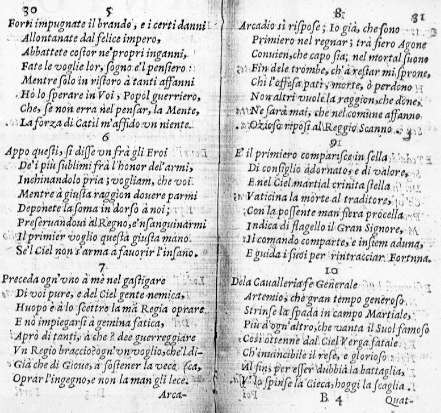 30 5
Forti impugnate il brando, e i certi danni
Allontanate dal felice impero,
Abbattete costor ne' propri inganni,
Fate le voglie lor, sogno è'l pensero
Mentre solo in ristoro à tanti affanni
Hò lo sperare in Voi, Popol guerriero,
Che, se non erra nel pensar, la Mente,
La forza di Catil m'affido un niente.
6
Appo questi, si disse un frà gli Eroi
De'i più sublimi frà l'honor dell'armi,
Inchinandolo pria; vogliam, che voi
Mentre à giusta raggion dovere parmi
Deponete la soma in dorso à noi;
Preservandoui al Regno, e'nsanguinarmi
Il primier voglio questa giusta mano
Se'l Ciel non s'arma a fauorir l'insano.
7
Preceda ogn'vno à mè nel gastigare
Di voi pure, e del Ciel gente nemica,
Huopo è à lo scettro la mà Regia oprare
E nò impiegarsi à gemina fatica,
Aprò di tanti, à che? dee guerreggiare
Vn Regio braccio? ogn'vn voglio, che'l di-
Già che di Gioue, à sostener la vece
Oprar l'ingegno, e non la man gli lece.
Arca-
8 31
Arcadio sì rispose; Io già, che sono
Primiero nel regnar; trà fiero Agone
Conuien, che capo sia; nel mortal suono
Fin dele trombe, ch'à restar mi sprone,
Chi l'offesa pati, morte, ò perdono
Non altri vuole la raggion, che done,
Ne sarà mai, che nel comune affanno
Ozioso riposi al Reggio Scanno.
9
E il primiero comparsce in sella
Di consiglio adornato, e di valore,
E nel Ciel martial crinita stella
Vaticina la morte al traditore,
Con la possente man fiera procella
Indica di flagello il Gran Signore,
Ii comando comparte, e insiem aduna,
E guida i suoi per rintracciar Fortnna.
10
Dela Cauallería se Generale
Artemio, chè gran tempo generoso
Strinse la spada in campo Martiale,
Più d'ogn'altro, che vanta il Suol famoso
Cesi ottenne dal Ciel Verga fatale
Ch'inuincibile il rese, e glorioso
Al fin, per esser dubbia la battaglia,
V' lo spinse la Cieca, hoggi la scaglia.
B 4 Quat-